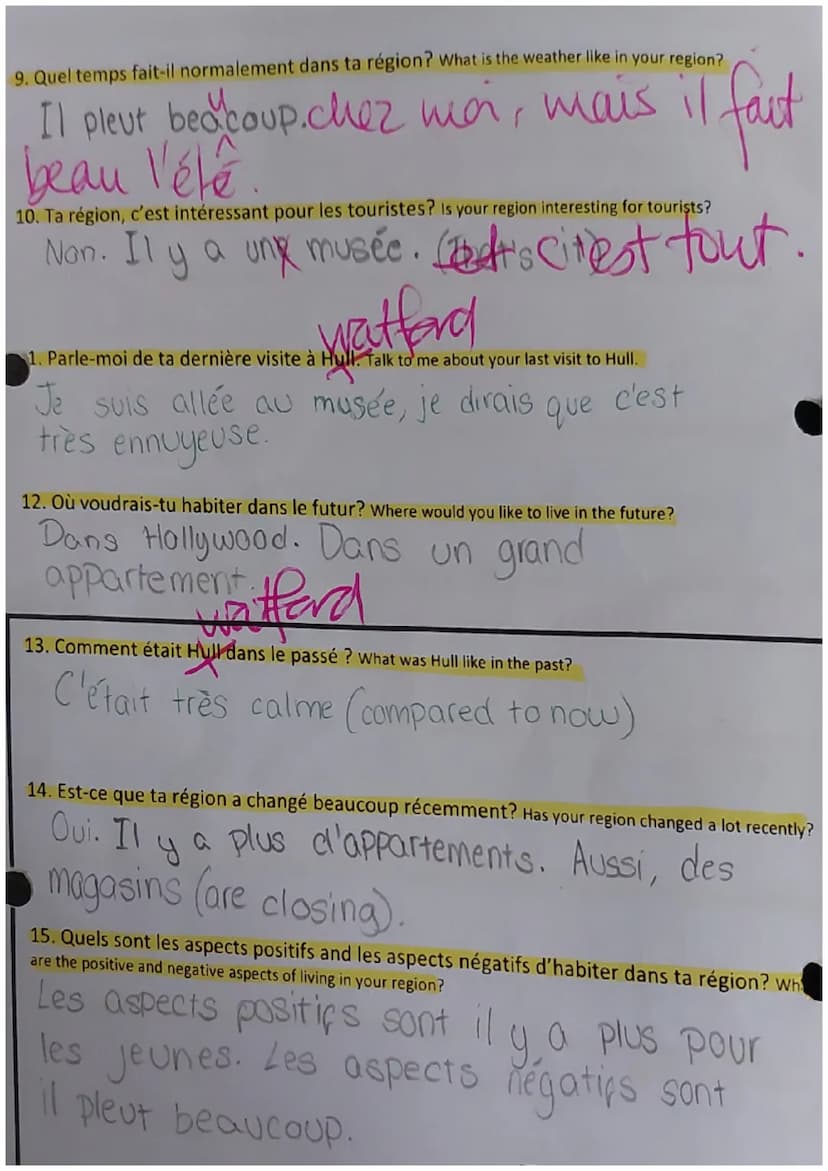 9. Quel temps fait-il normalement dans ta région? What is the weather like in your region?
Il pleut beaucoup. chez moi, mais il fait
beau l'été.
10. Ta région, c'est intéressant pour les touristes? Is your region interesting for tourists?
Non. Il y a un musée. c'est tout.
Watford
1. Parle-moi de ta dernière visite à Hull. Talk to me about your last visit to Hull.
Je suis allée au musée, je dirais que c'est
très ennuyeuse.
12. Où voudrais-tu habiter dans le futur? Where would you like to live in the future?
Dans Hollywood. Dans un grand
appartement.
Watford
13. Comment était Hull dans le passé ? What was Hull like in the past?
C'était très calme (compared to now)
14. Est-ce que ta région a changé beaucoup récemment? Has your region changed a lot recently?
Oui. Il y a plus d'appartements. Aussi, des
magasins (are closing).
15. Quels sont les aspects positifs and les aspects négatifs d'habiter dans ta région? Wh
are the positive and negative aspects of living in your region?
Les aspects positifs sont il y a plus pour
les jeunes. Les aspects négatifs sont
il pleut beaucoup.